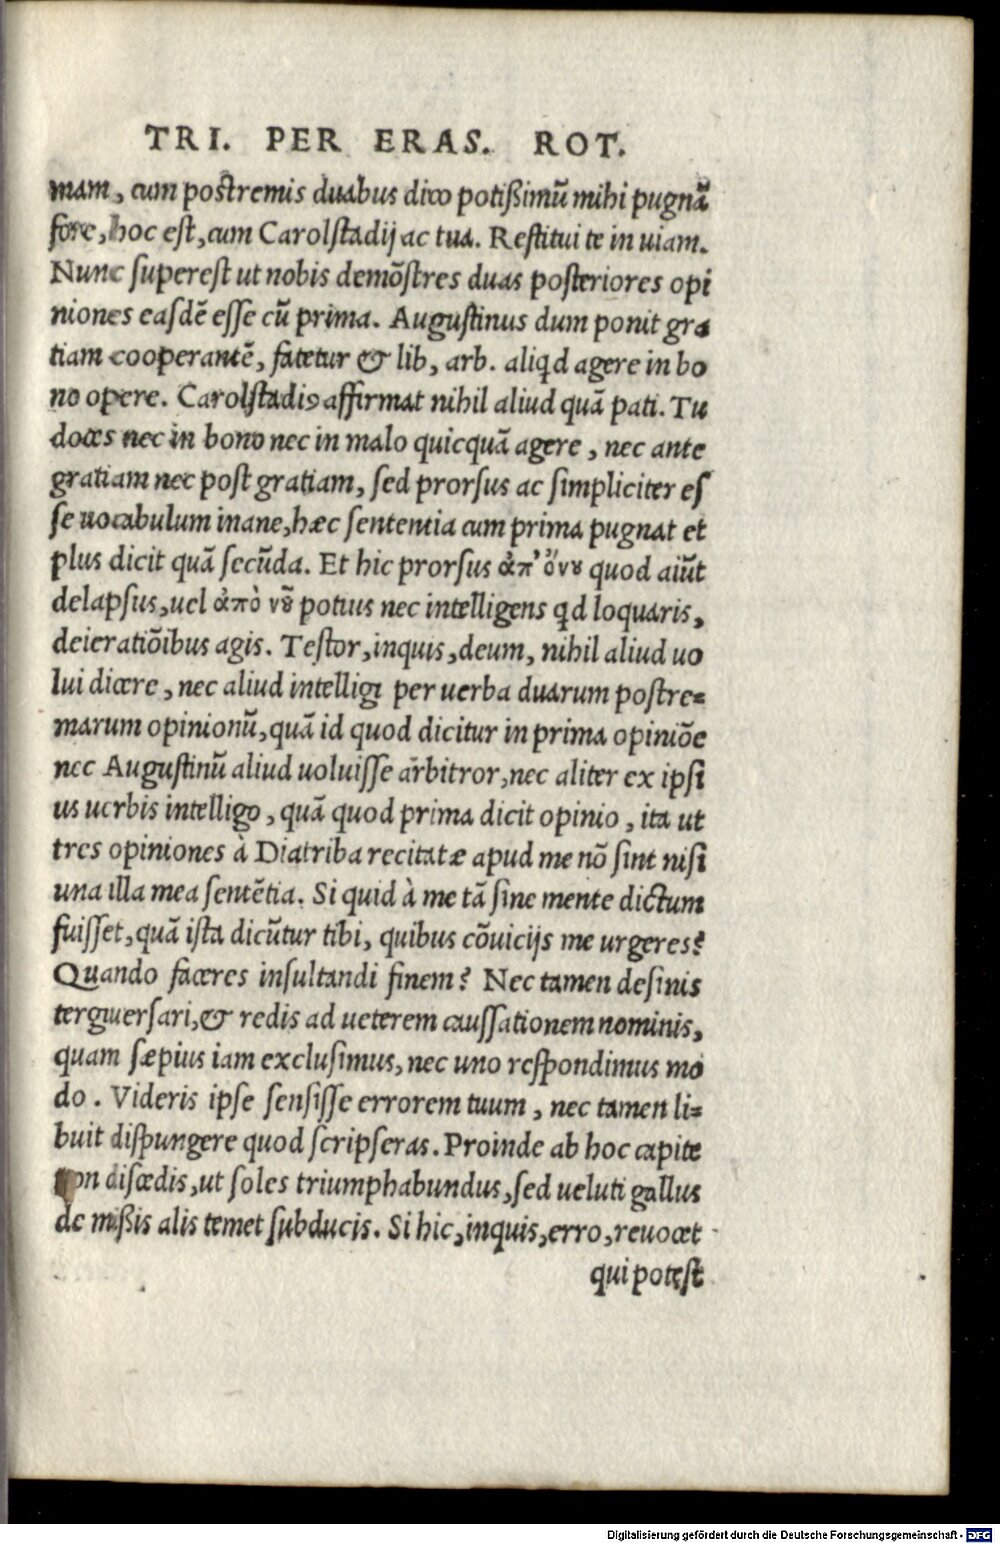 TRI. PER ERAS. ROT.
mam, cum postremis duabus dico potißimũ mihi pugnã
fore, hoc est, cum Carolstadij ac tua. Restitui te in uiam.
Nunc superest ut nobis demõstres duas posteriores opi
niones easdẽ esse cũ prima. Augustinus dum ponit gra
tiam cooperantẽ, fatetur & lib, arb. aliqd agere in bo
no opere. Carolstadiꝰ affirmat nihil aliud quã pati. Tu
doces nec in bono nec in malo quicquã agere, nec ante
gratiam nec post gratiam, sed prorsus ac simpliciter es
se uocabulum inane, hæc sententia cum prima pugnat et
plus dicit quã secũda. Et hic prorsus ἀπ' ὄνȣ quod aiũt
delapsus, uel ἀπὸ νȣ͂ potius nec intelligens qd loquaris,
deieratiõibus agis. Testor, inquis, deum, nihil aliud uo
lui dicere, nec aliud intelligi per uerba duarum postre=
marum opinionũ, quã id quod dicitur in prima opiniõe
nec Augustinũ aliud uoluisse arbitror, nec aliter ex ipsi
us uerbis intelligo, quã quod prima dicit opinio, ita ut
tres opiniones à Diatriba recitatæ apud me nõ sint nisi
una illa mea sentẽtia. Si quid à me tã sine mente dictum
fuisset, quã ista dicũtur tibi, quibus cõuicijs me urgeres?
Quando faceres insultandi finem? Nec tamen desinis
tergiuersari, & redis ad ueterem caussationem nominis,
quam sæpius iam exclusimus, nec uno respondimus mo
do. Videris ipse sensisse errorem tuum, nec tamen li=
buit dispungere quod scripseras. Proinde ab hoc capite
non discedis, ut soles triumphabundus, sed ueluti gallus
de mißis alis temet subducis. Si hic, inquis, erro, reuocet
qui potest
Digitalisierung gefördert durch die Deutsche Forschungsgemeinschaft - DFG